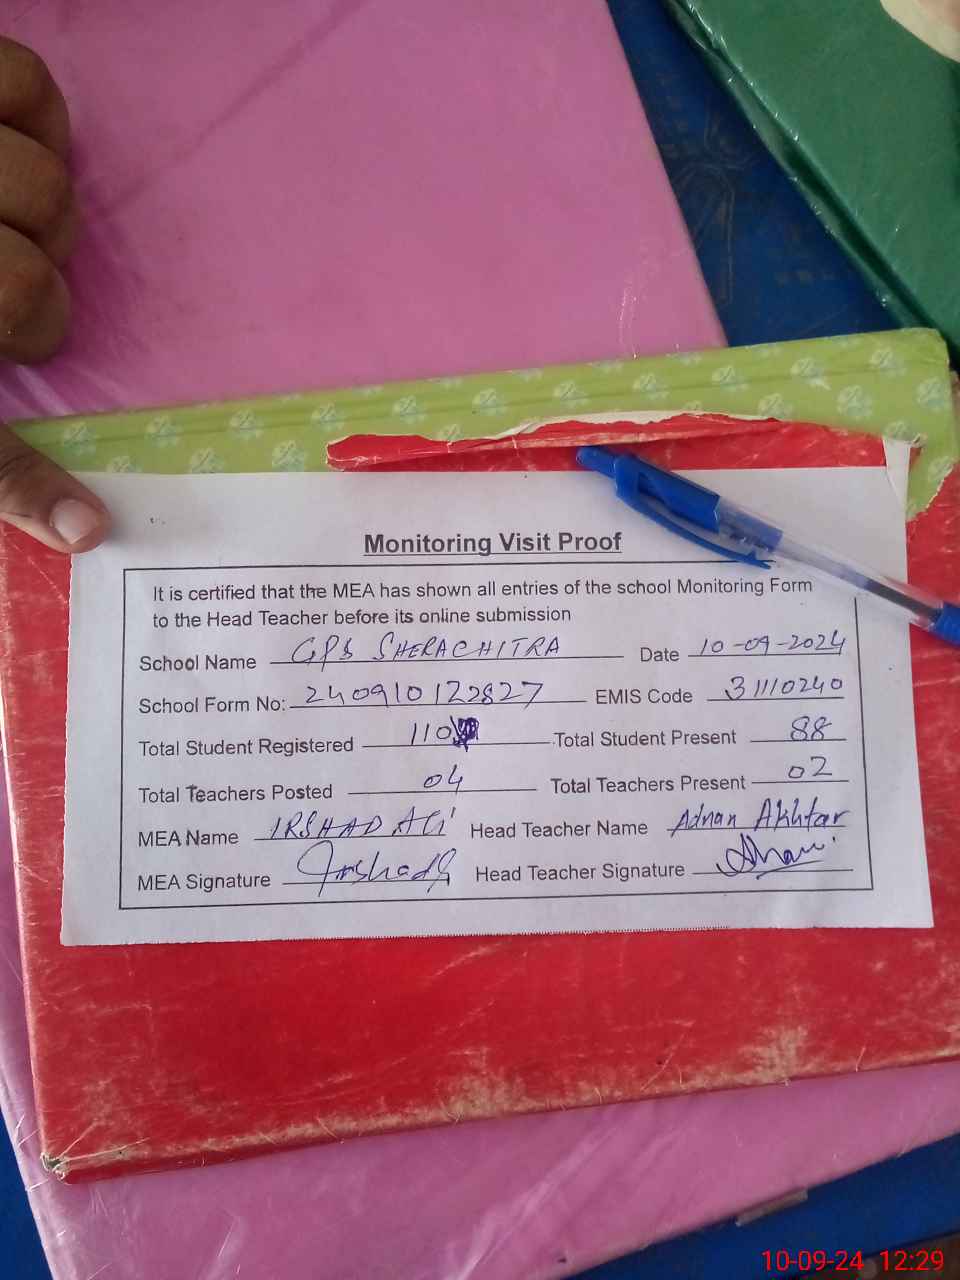 Monitoring Visit Proof
It is certified that the MEA has shown all entries of the school Monitoring Form
to the Head Teacher before its online submission
School Name GPS SHERACHITRA Date 10-09-2024
School Form No: 240910122827 EMIS Code 31110240
Total Student Registered 110 Total Student Present 88
Total Teachers Posted 04 Total Teachers Present 02
MEA Name IRSHAD ALI Head Teacher Name Adnan Akhtar
MEA Signature Head Teacher Signature
10-09-24 12:29